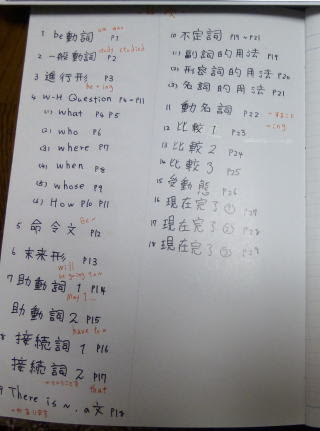 1 be動詞 P1
am are
2 一般動詞 P2
study studied
3 進行形 P3
be + ing
4 W-H Question P4~P11
(1) what P4 P5
(2) who P6
(3) where P7
(4) when P8
(5) whose P9
(6) How P10 P11
5 命令文 P12
Be~
6 未来形 P13
will
be going to~
7 助動詞 1 P14
May I~
助動詞 2 P15
have to~
8 接続詞 1 P16
接続詞 2 P17
that
9 There is ~. の文 P18
10 不定詞 P19~P21
(1) 副詞的用法 P19
(2) 形容詞的用法 P20
(3) 名詞的用法 P21
11 動名詞 P22 ~すること
~ing
12 比較 1 P23
13 比較 2 P24
14 比較 3 P25
15 受動態 P26
16 現在完了 ① P27
17 現在完了 ② P28
18 現在完了 ③ P29